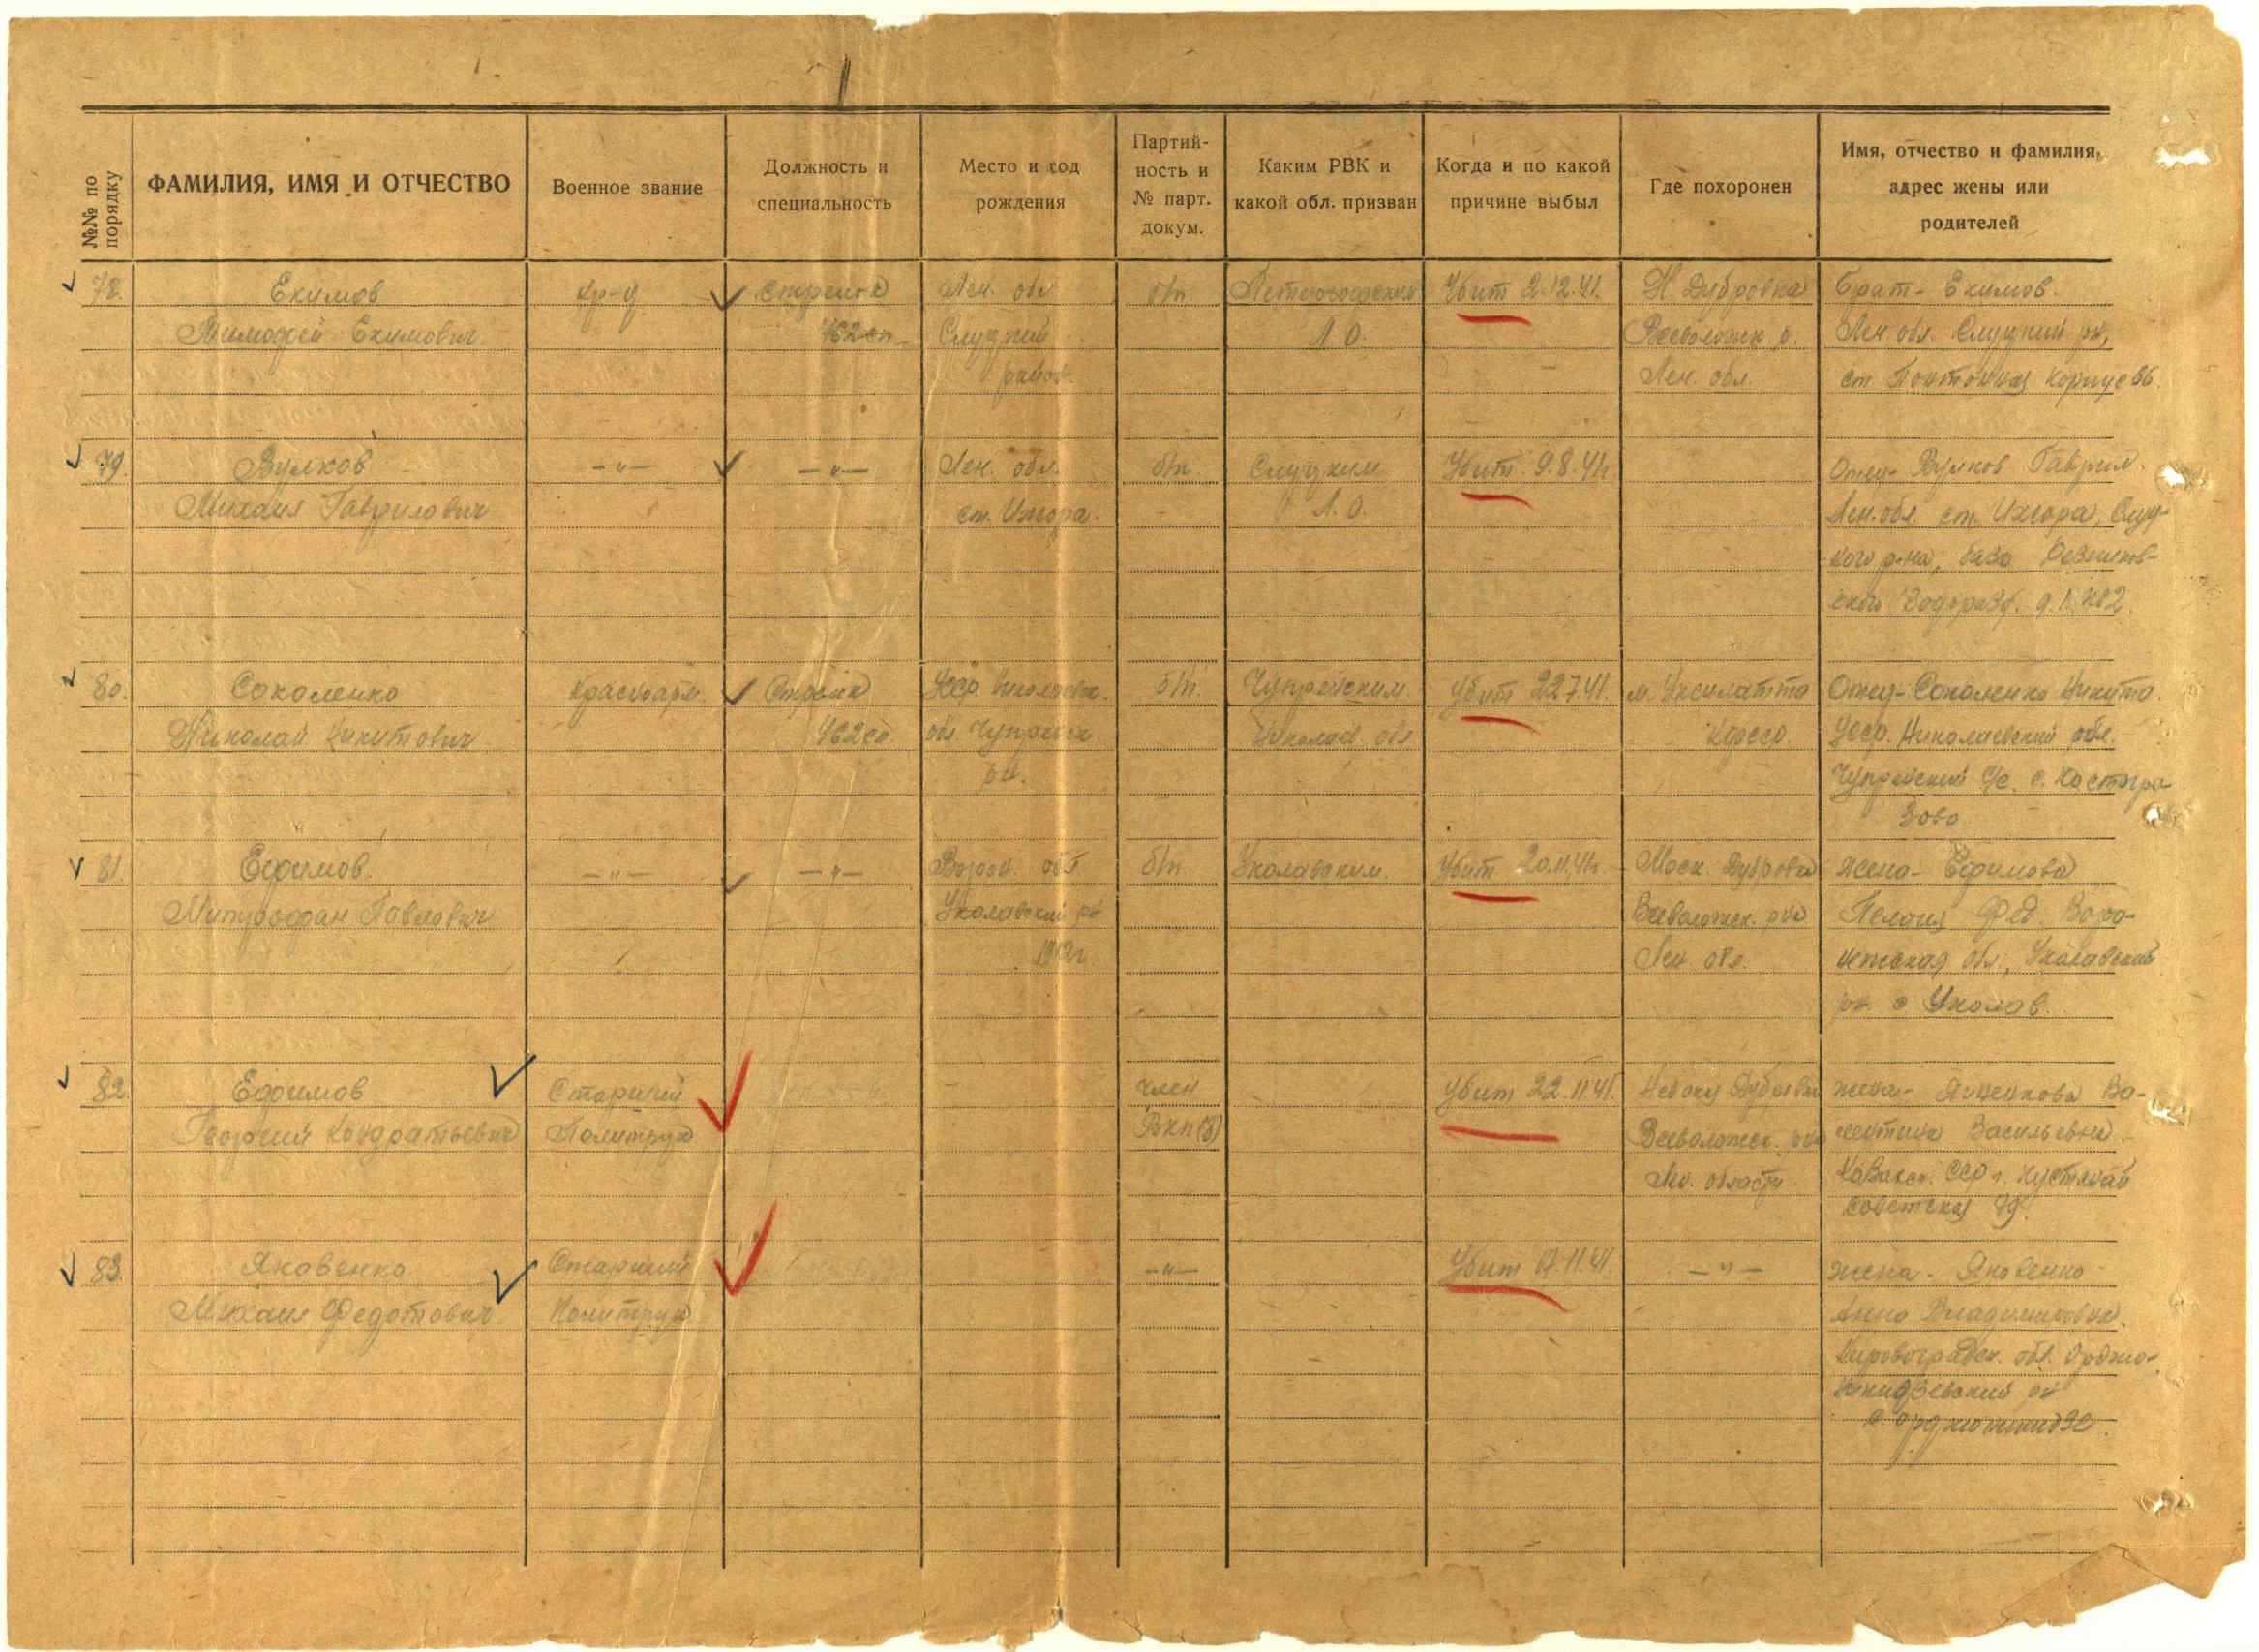 №№ по порядку
ФАМИЛИЯ, ИМЯ И ОТЧЕСТВО
Военное звание
Должность и
специальность
Место и год
рождения
Партий-
ность и
№ парт.
докум.
Каким РВК и
какой обл. призван
Когда и по какой
причине выбыл
Где похоронен
Имя, отчество и фамилия,
адрес жены или
родителей
78 Екимов кр-ц стрелок Лен. обл. б/п Убит 2.12.41. Н. Дубровка Брат - Екимов
Тимофей Екимович 462 сп Слуцкий Л.О. Всеволожск. р. Лен. обл. Слуцкий рн,
район Лен. обл. ст.
79. Вулков —"— —"— Лен. обл. б/п Слуцким Убит 9.8.41г Отец - Вулков Гаврил.
Михаил Гаврилович ст. Ижора. Л.О. Лен. обл. ст. Ижора, Слуц-
кого р-на,
80. Соколенко Красноарм. Стрелок УССР Николаевск. б/п. Убит 22.7.41. Отец - Соколенко Никита
Николай Никитович 462 сп обл. Николаев. обл КФССР УССР. Николаевский обл.
рн.
81. Ефимов —"— —"— Ворон. обл. б/п Уколавским. Убит 20.11.41г. Моск. Дубровка жена - Ефимова
Митрофан Павлович Уколавский рн Всеволожск. рн Пелагия Фед. Воро-
1912г Лен. обл. нежская обл., Уколавский
рн. с Уколов.
82. Ефимов Старший член Убит 22.11.41. Невская Дубровка жена - Ва-
Георгий Кондратьевич Политрук ВКП(б) Всеволожск. рн лентина Васильевна
Лен. область Казахск. ССР г. Кустанай
Советская 79.
83. Яковенко Старший —"— Убит 17.11.41. —"— жена - Яковенко
Михаил Федотович Политрук Анна Владимировна.
Кировоградск. обл. Орджо-
никидзевский рн
с. Орджоникидзе.